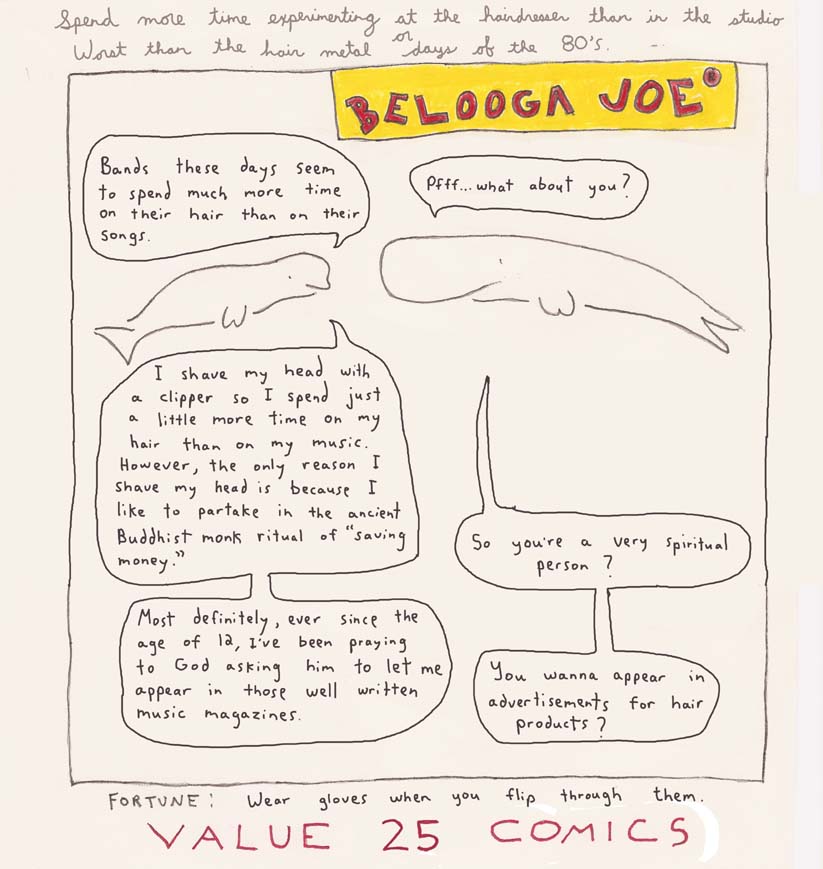 Spend more time experimenting at the hairdresser than in the studio
Worst than the hair metal or days of the 80's.
BELOOGA JOE®
Bands these days seem
to spend much more time
on their hair than on their
songs.
Pfff...what about you?
I shave my head with
a clipper so I spend just
a little more time on my
hair than on my music.
However, the only reason I
shave my head is because I
like to partake in the ancient
Buddhist monk ritual of "saving
money."
So you're a very spiritual
person?
Most definitely, ever since the
age of 12, I've been praying
to God asking him to let me
appear in those well written
music magazines.
You wanna appear in
advertisements for hair
products?
FORTUNE: Wear gloves when you flip through them.
VALUE 25 COMICS